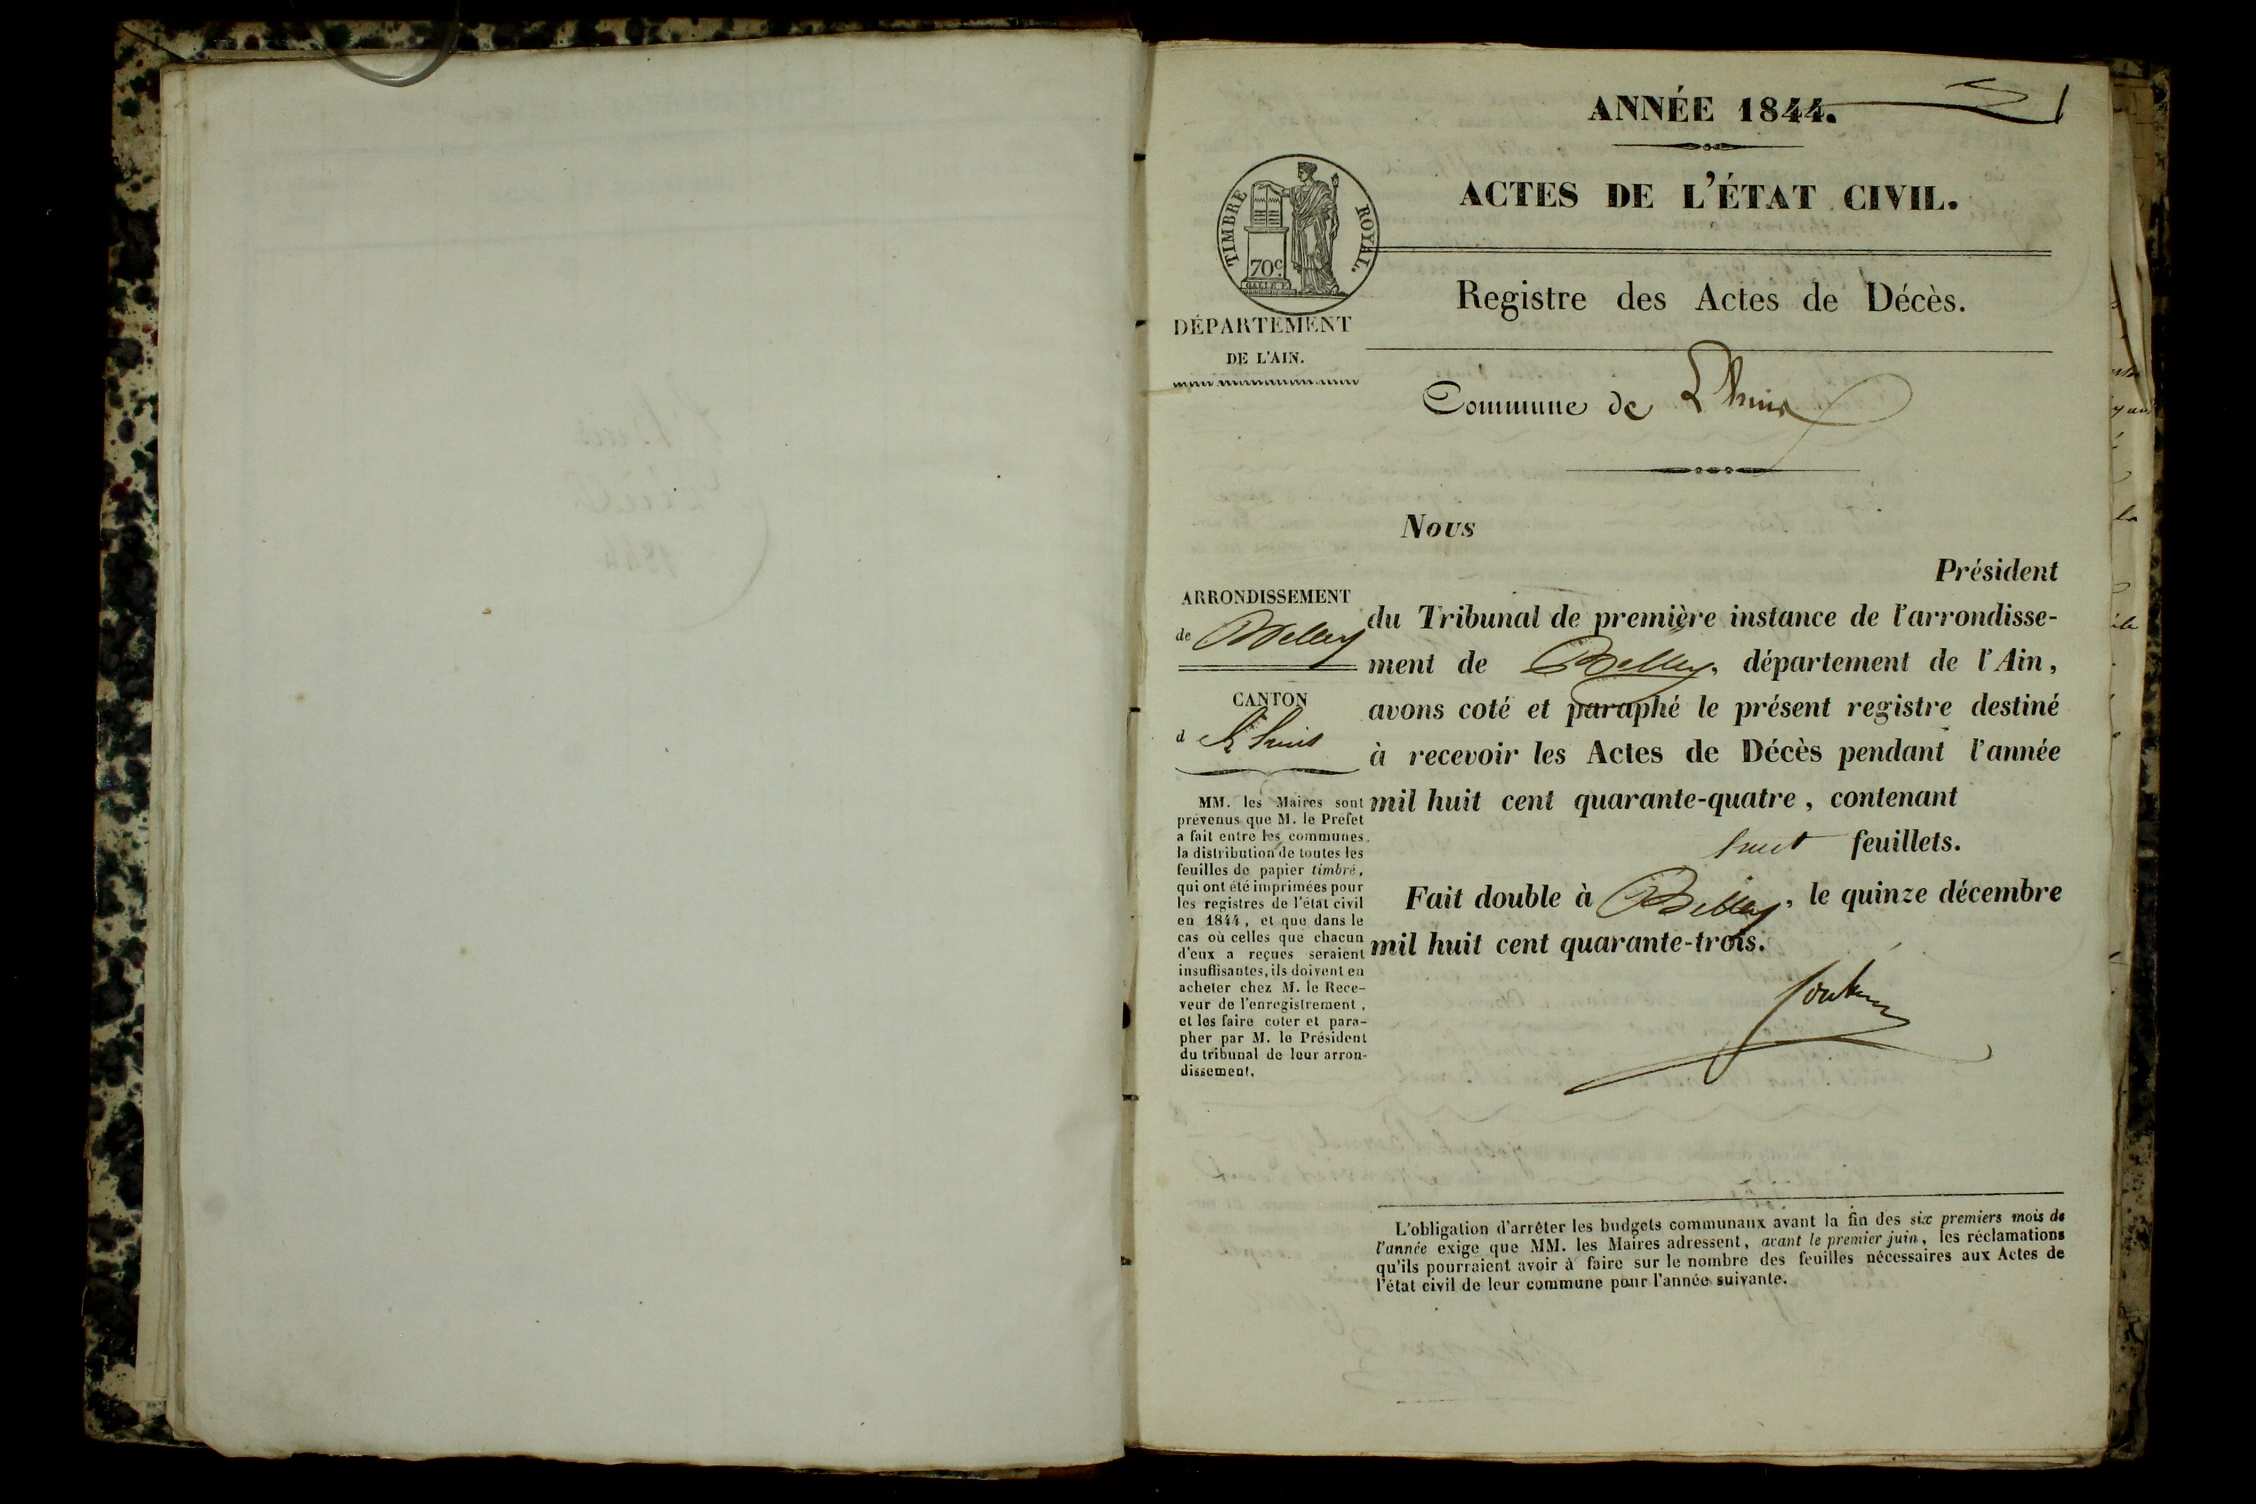 ANNÉE 1844.
1
ACTES DE L'ÉTAT CIVIL.
TIMBRE ROYAL.
70c
Registre des Actes de Décès.
DÉPARTEMENT
DE L'AIN.
Commune de Lhuis
Nous
Président
du Tribunal de première instance de l'arrondisse-
ment de Belley, département de l'Ain,
avons coté et paraphé le présent registre destiné
à recevoir les Actes de Décès pendant l'année
mil huit cent quarante-quatre, contenant
huit feuillets.
Fait double à Belley, le quinze décembre
mil huit cent quarante-trois.
ARRONDISSEMENT
de Belley
CANTON
d Lhuis
MM. les Maires sont
prévenus que M. le Préfet
a fait entre les communes
la distribution de toutes les
feuilles de papier timbré,
qui ont été imprimées pour
les registres de l'état civil
en 1844, et que dans le
cas où celles que chacun
d'eux a reçues seraient
insuffisantes, ils doivent en
acheter chez M. le Rece-
veur de l'enregistrement,
et les faire coter et para-
pher par M. le Président
du tribunal de leur arron-
dissement.
L'obligation d'arrêter les budgets communaux avant la fin des six premiers mois de
l'année exige que MM. les Maires adressent, avant le premier juin, les réclamations
qu'ils pourraient avoir à faire sur le nombre des feuilles nécessaires aux Actes de
l'état civil de leur commune pour l'année suivante.